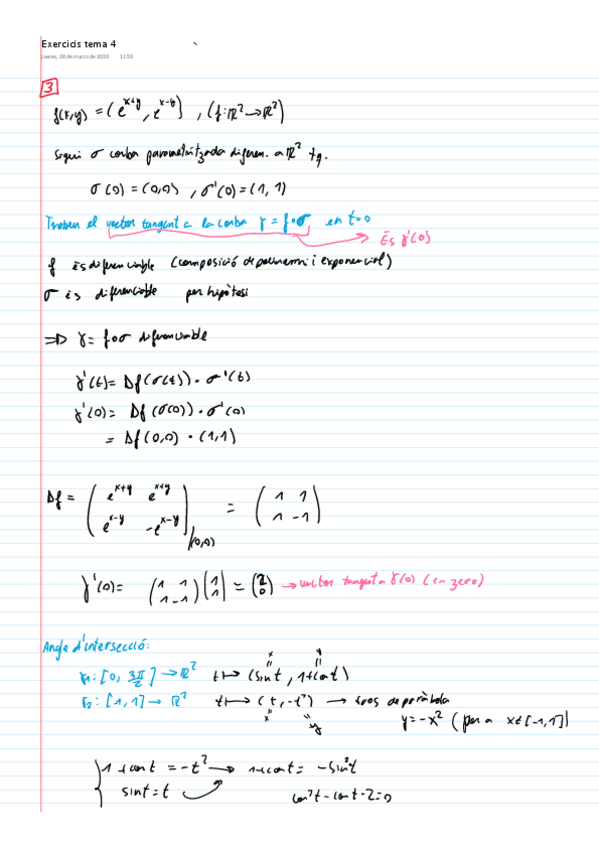 Exercicis tema 4
jueves, 28 de marzo de 2020 11:50
3
f(x,y) = (e^{x+y}, e^{x-y}) , (f: ℝ² → ℝ²)
Sigui σ corba parametritzada diferen. a ℝ² tq.
σ(0) = (0,0) , σ'(0) = (1, 1)
Trobem el vector tangent a la corba γ = f∘σ en t=0
És γ'(0)
f és diferenciable (composició de polinomi i exponencial)
σ és diferenciable per hipòtesi
⇒ γ = f∘σ diferenciable
γ'(t) = Df(σ(t)) · σ'(t)
γ'(0) = Df(σ(0)) · σ'(0)
= Df(0,0) · (1,1)
Df = ( e^{x+y} e^{x+y} ; e^{x-y} -e^{x-y} )|(0,0) = ( 1 1 ; 1 -1 )
γ'(0) = ( 1 1 ; 1 -1 ) ( 1 ; 1 ) = ( 2 ; 0 ) → vector tangent a γ(0) (en zero)
Angle d'intersecció:
x y
γ₁: [0, 3π/2] → ℝ² t ↦ (sin t, 1+cos t)
r₂: [1,1] → ℝ² t ↦ (t, -t²) → tros de paràbola
x y y = -x² (per a x∈[-1,1])
{ 1+cos t = -t² → 1+cos t = -sin²t
sin t = t
cos²t - cos t - 2 = 0